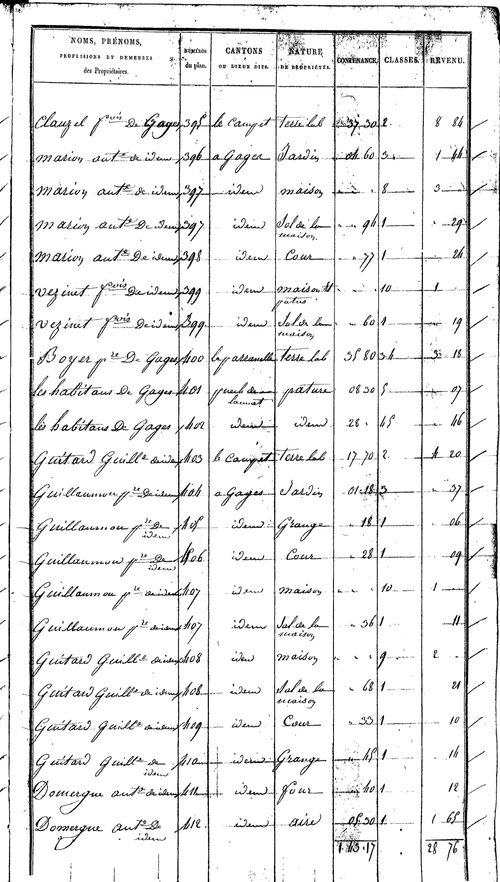 NOMS, PRÉNOMS, PROFESSIONS ET DEMEURES des Propriétaires. | NUMÉROS du plan. | CANTONS OU LIEUX DITS. | NATURE DE PROPRIÉTÉS. | CONTENANCE. | CLASSES. | REVENU.
Clauzel fois De Gages 395 le Camp et terre lab 37 30 2 8 84
marion ante de idem 396 a Gages Jardin 04 60 3 1 44
marion ante de idem 397 idem maison 8 3
marion ante De idem 397 idem Sol de la maison 94 1 29
marion ante De idem 398 idem Cour 77 1 24
vezinet fois de idem 399 idem maison et patus 10 1
vezinet fois de idem 399 idem Sol de la maison 60 1 19
Boyer pre De Gages 400 terre lab 35 80 34 3 18
les habitans de Gages 401 puech de pature 08 30 5 07
les habitans De Gages 402 idem idem 28 45 46
Guitard Guille de idem 403 le Camp et terre lab 17 70 2 4 20
Guillaumou pre de idem 404 a Gages Jardin 01 18 3 37
Guillaumou pre De idem 405 idem Grange 18 1 06
Guillaumou pre De idem 406 idem Cour 28 1 09
Guillaumou pre de idem 407 idem maison 10 1
Guillaumou pre de idem 407 idem Sol de la maison 36 1 11
Guitard Guille de idem 408 idem maison 9 2
Guitard Guille de idem 408 idem Sol de la maison 68 1 21
Guitard Guille de idem 409 idem Cour 33 1 10
Guitard Guille de idem 410 idem Grange 45 1 14
Domergue ante de idem 411 idem four 40 1 12
Domergue ante De idem 412 idem aire 05 30 1 1 65
1 43 17 28 76